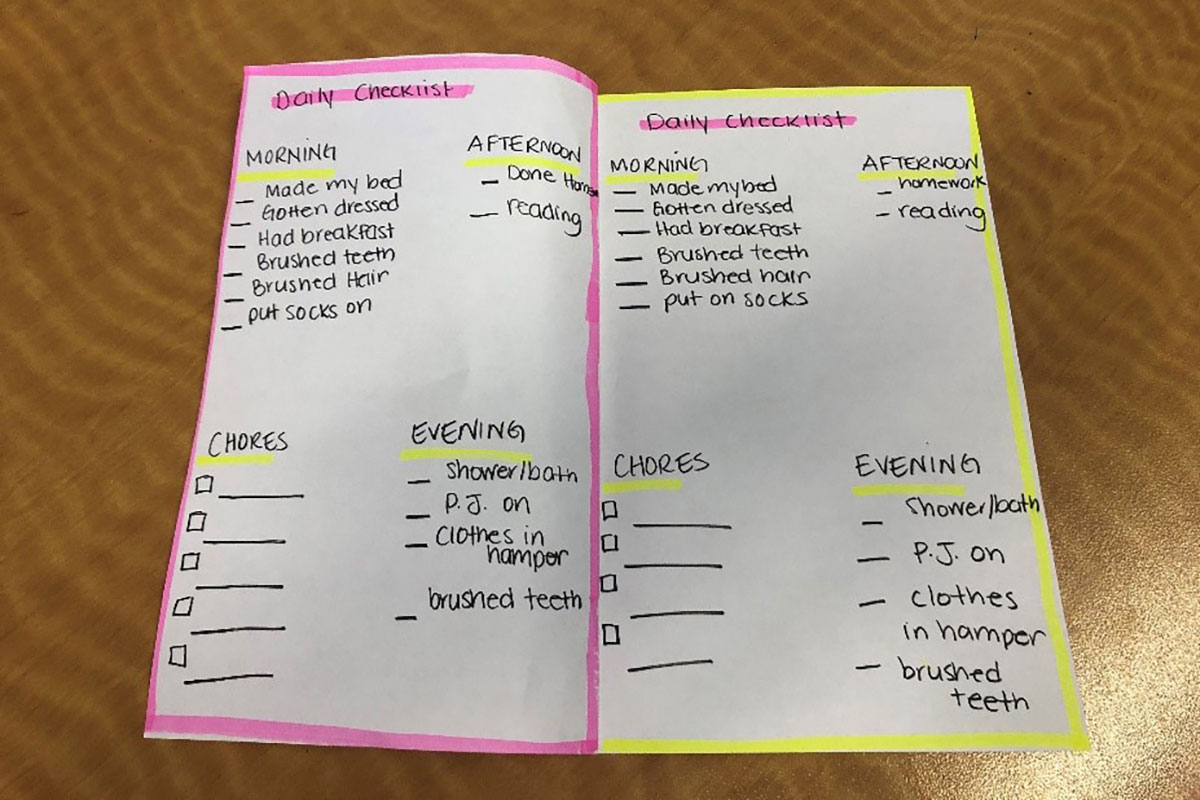 Daily Checklist
MORNING
Made my bed
Gotten dressed
Had breakfast
Brushed teeth
Brushed Hair
put socks on
AFTERNOON
Done
reading
CHORES
EVENING
Shower/bath
P.J. on
Clothes in
hamper
brushed teeth
Daily Checklist
MORNING
Made my bed
Gotten dressed
Had breakfast
Brushed teeth
Brushed hair
put on socks
AFTERNOON
homework
reading
CHORES
EVENING
Shower/bath
P.J. on
clothes
in hamper
brushed
teeth